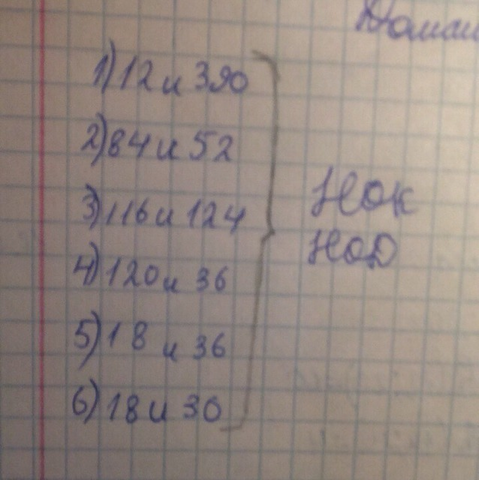 1) 12 и 390
2) 84 и 52
3) 116 и 124
4) 120 и 36
5) 18 и 36
6) 18 и 30
НОК
НОД